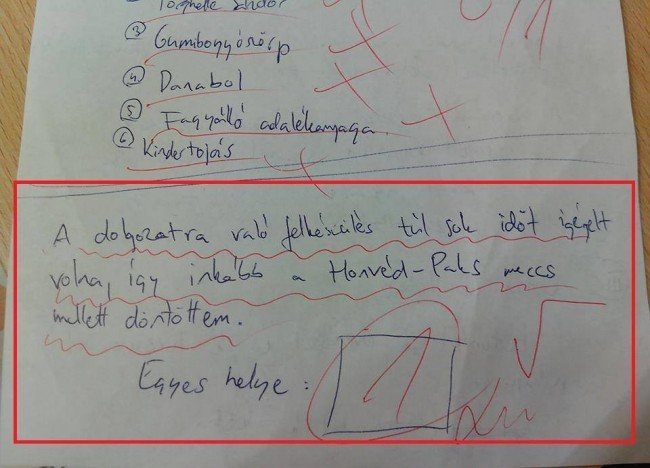 Torghelle Sándor
③ Gumibogyószörp
④ Danabol
⑤ Fagyálló adalékanyaga
⑥ Kindertojás
A dolgozatra való felkészülés túl sok időt igényelt
volna, így inkább a Honvéd-Paks meccs
mellett döntöttem.
Egyes helye:
1